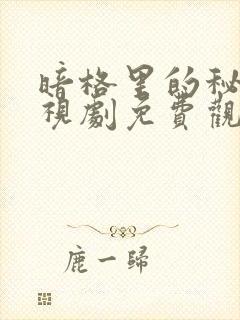 暗格里的秘
視劇免費觀
鹿一歸